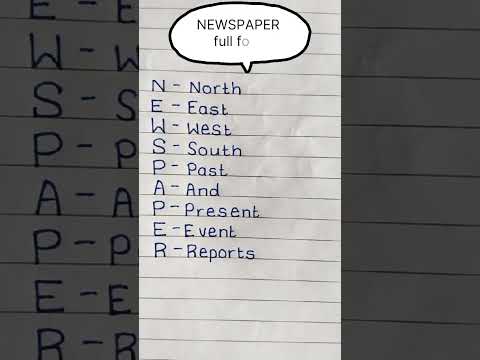 NEWSPAPER
full fo
N - North
E - East
W - West
S - South
P - Past
A - And
P - Present
E - Event
R - Reports